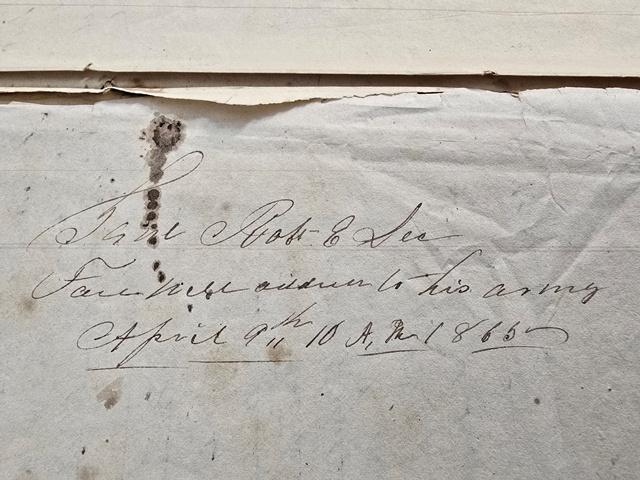 Genl Robt E Lee
Farewell address to his army
April 9th 10 A, M 1865